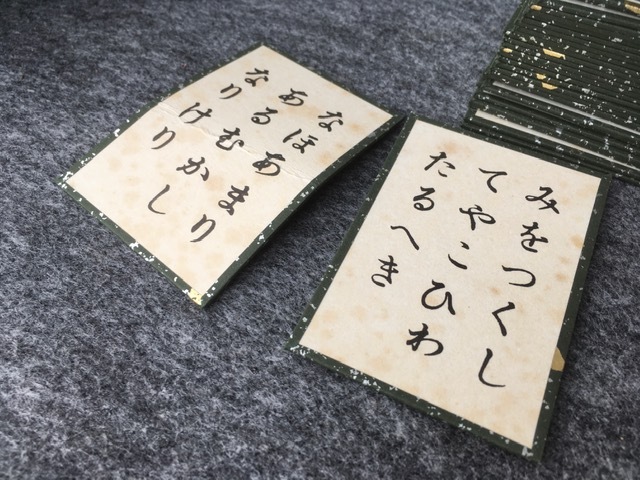 みをつくし
てやこひわ
たるへき
なほあまり
あるむかし
なりけり